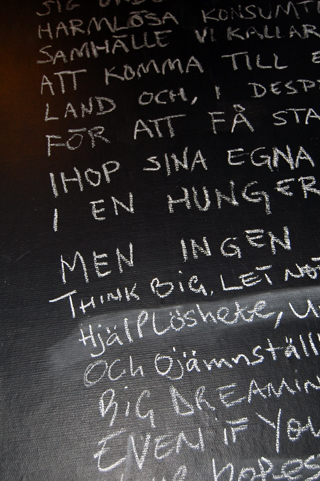 HARMLÖSA KONSUMT
SAMHÄLLE VI KALLAR
ATT KOMMA TILL E
LAND OCH, I DESP
FÖR ATT FÅ STA
IHOP SINA EGNA
I EN HUNGER
MEN INGEN
THINK BIG, LET NOT
Hjälplöshete, U
OCH Ojämnställ
BIG DREAMIN
EVEN IF YOU
hopes